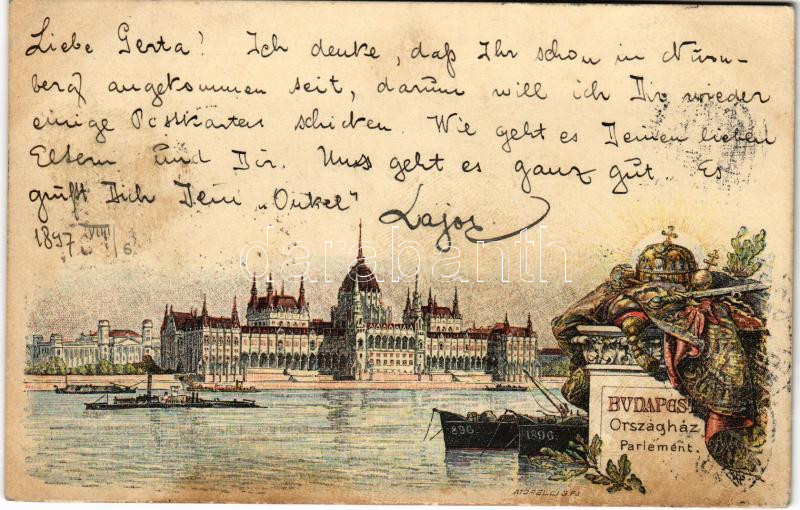 Liebe Gerta! Ich denke, daß Ihr schon in Nürn-
berg angekommen seit, darum will ich Dir wieder
einige Postkarten schicken. Wie geht es Deinen lieben
Eltern und Dir. Uns geht es ganz gut. Es
grüßt Dich Dein „Onkel"
Lajos
1897 VIII/6
darabanth
896.
1896.
BUDAPEST
Országház
Parlement.
MORELLI G. F.